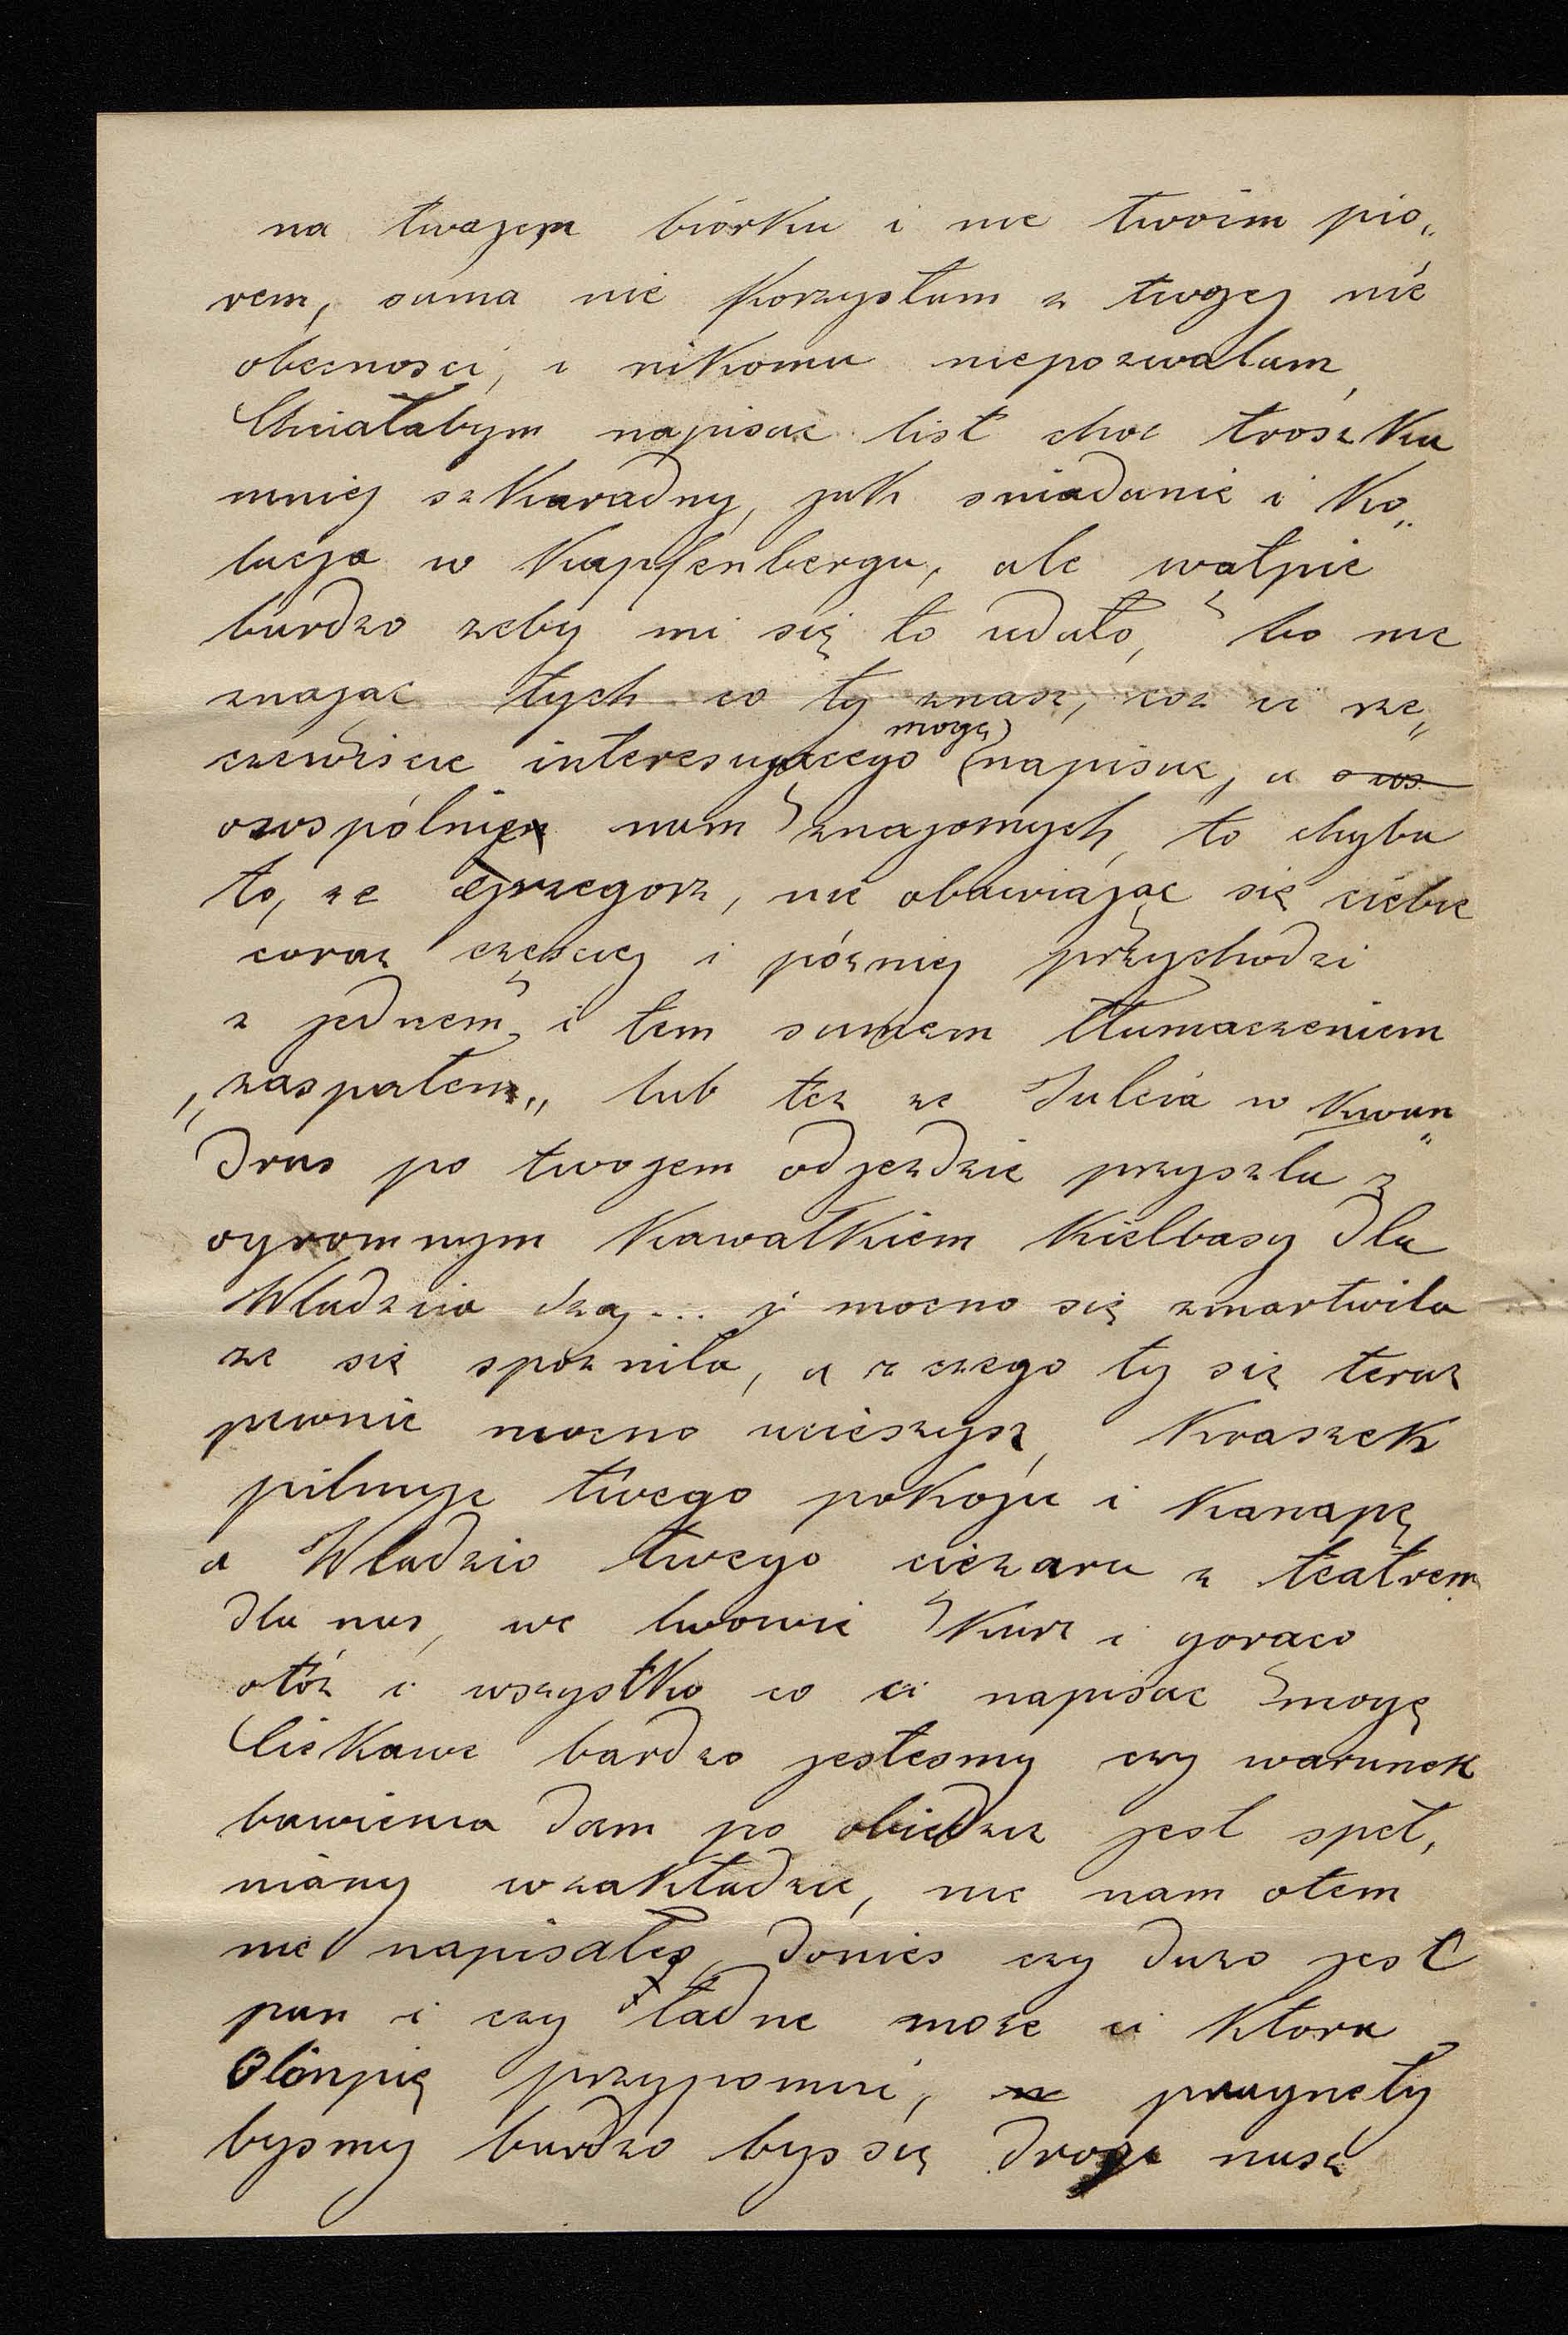 na twojem biórku i nie twoim pio„
rem, sama nie korzystam z twojej nie
obecnosci, i nikomu niepozwalam,
Chciałabym napisac list choc troszku
mniej szkaradny, jak sniadanie i ko„
lacja w Kapfenbergu, ale wątpie
bardzo zeby mi się to udało, bo nie
znając tych co ty znasz, coz ci rze„
czewiscie interesującego mogę napisac, a o ws
o wspólnie nam znajomych, to chyba
to, ze Grzegorz, nie obawiając się ciebie
coraz częsciej i pózniej przychodzi
z jednem i tem samem tłumaczeniem
„zaspałem„ lub tez ze Julcia w kwan„
dras po twojem odjezdzie przyszla z
ogromnym kawałkiem kielbasy dla
Wladzia i mocno się zmartwila
ze się spoznila, a z czego ty się teraz
pewnie mocno ucieszysz, Kraszek
pilnuje twego pokoju i kanapę
a Wladzio twego ciężaru z teatrem
dla nas, we lwowie kurz i gorąco
otóz i wszystko co ci napisac mogę
Ciekawe bardzo jestesmy czy warunek
bawienia dam po obiedzie jest speł,
niany w zakładzie, nic nam otem
nie napisałes, donies czy duzo jest
pan i czy ładne moze ci ktora
Olimpię przypomni, pragnęły
bysmy bardzo bys się drogi nasz